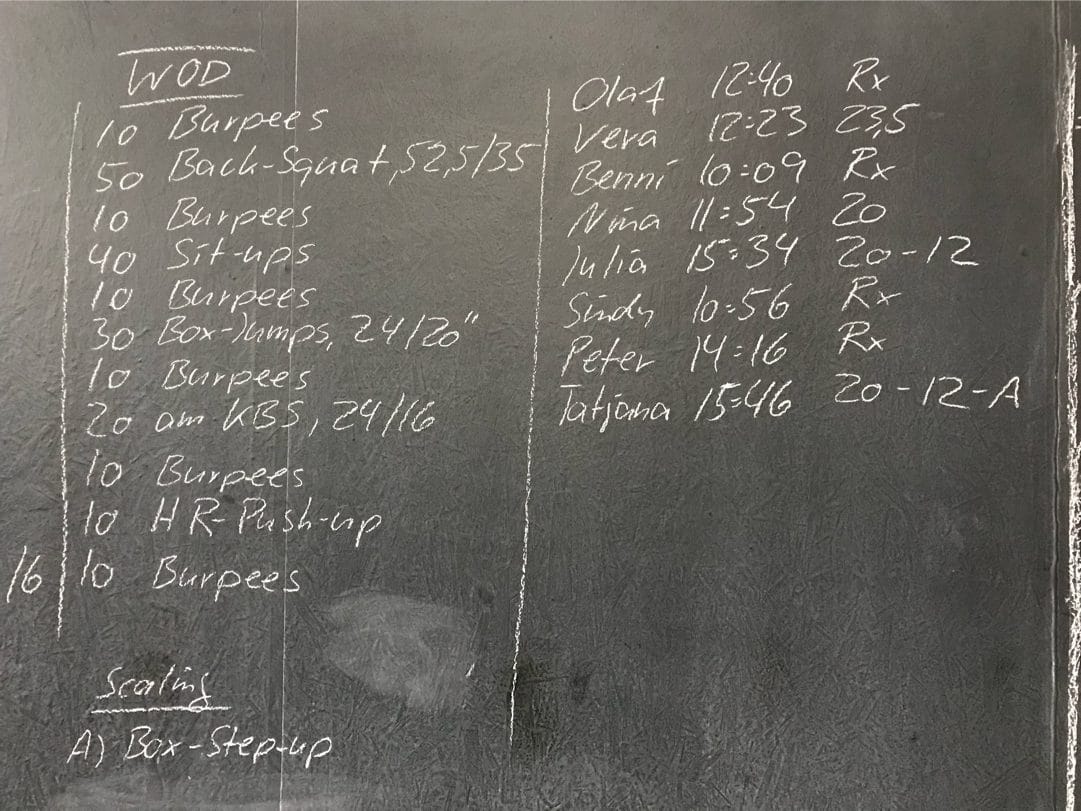 WOD
10 Burpees
50 Back-Squat, 52,5/35
10 Burpees
40 Sit-ups
10 Burpees
30 Box-Jumps, 24/20"
10 Burpees
20 am KBS, 24/16
10 Burpees
10 HR-Push-up
/6 10 Burpees
Scaling
A) Box-Step-up
Olaf 12:40 Rx
Vera 12:23 23,5
Benni 10:09 Rx
Nina 11:54 20
Julia 15:34 20-12
Sindy 10:56 Rx
Peter 14:16 Rx
Tatjana 15:46 20-12-A